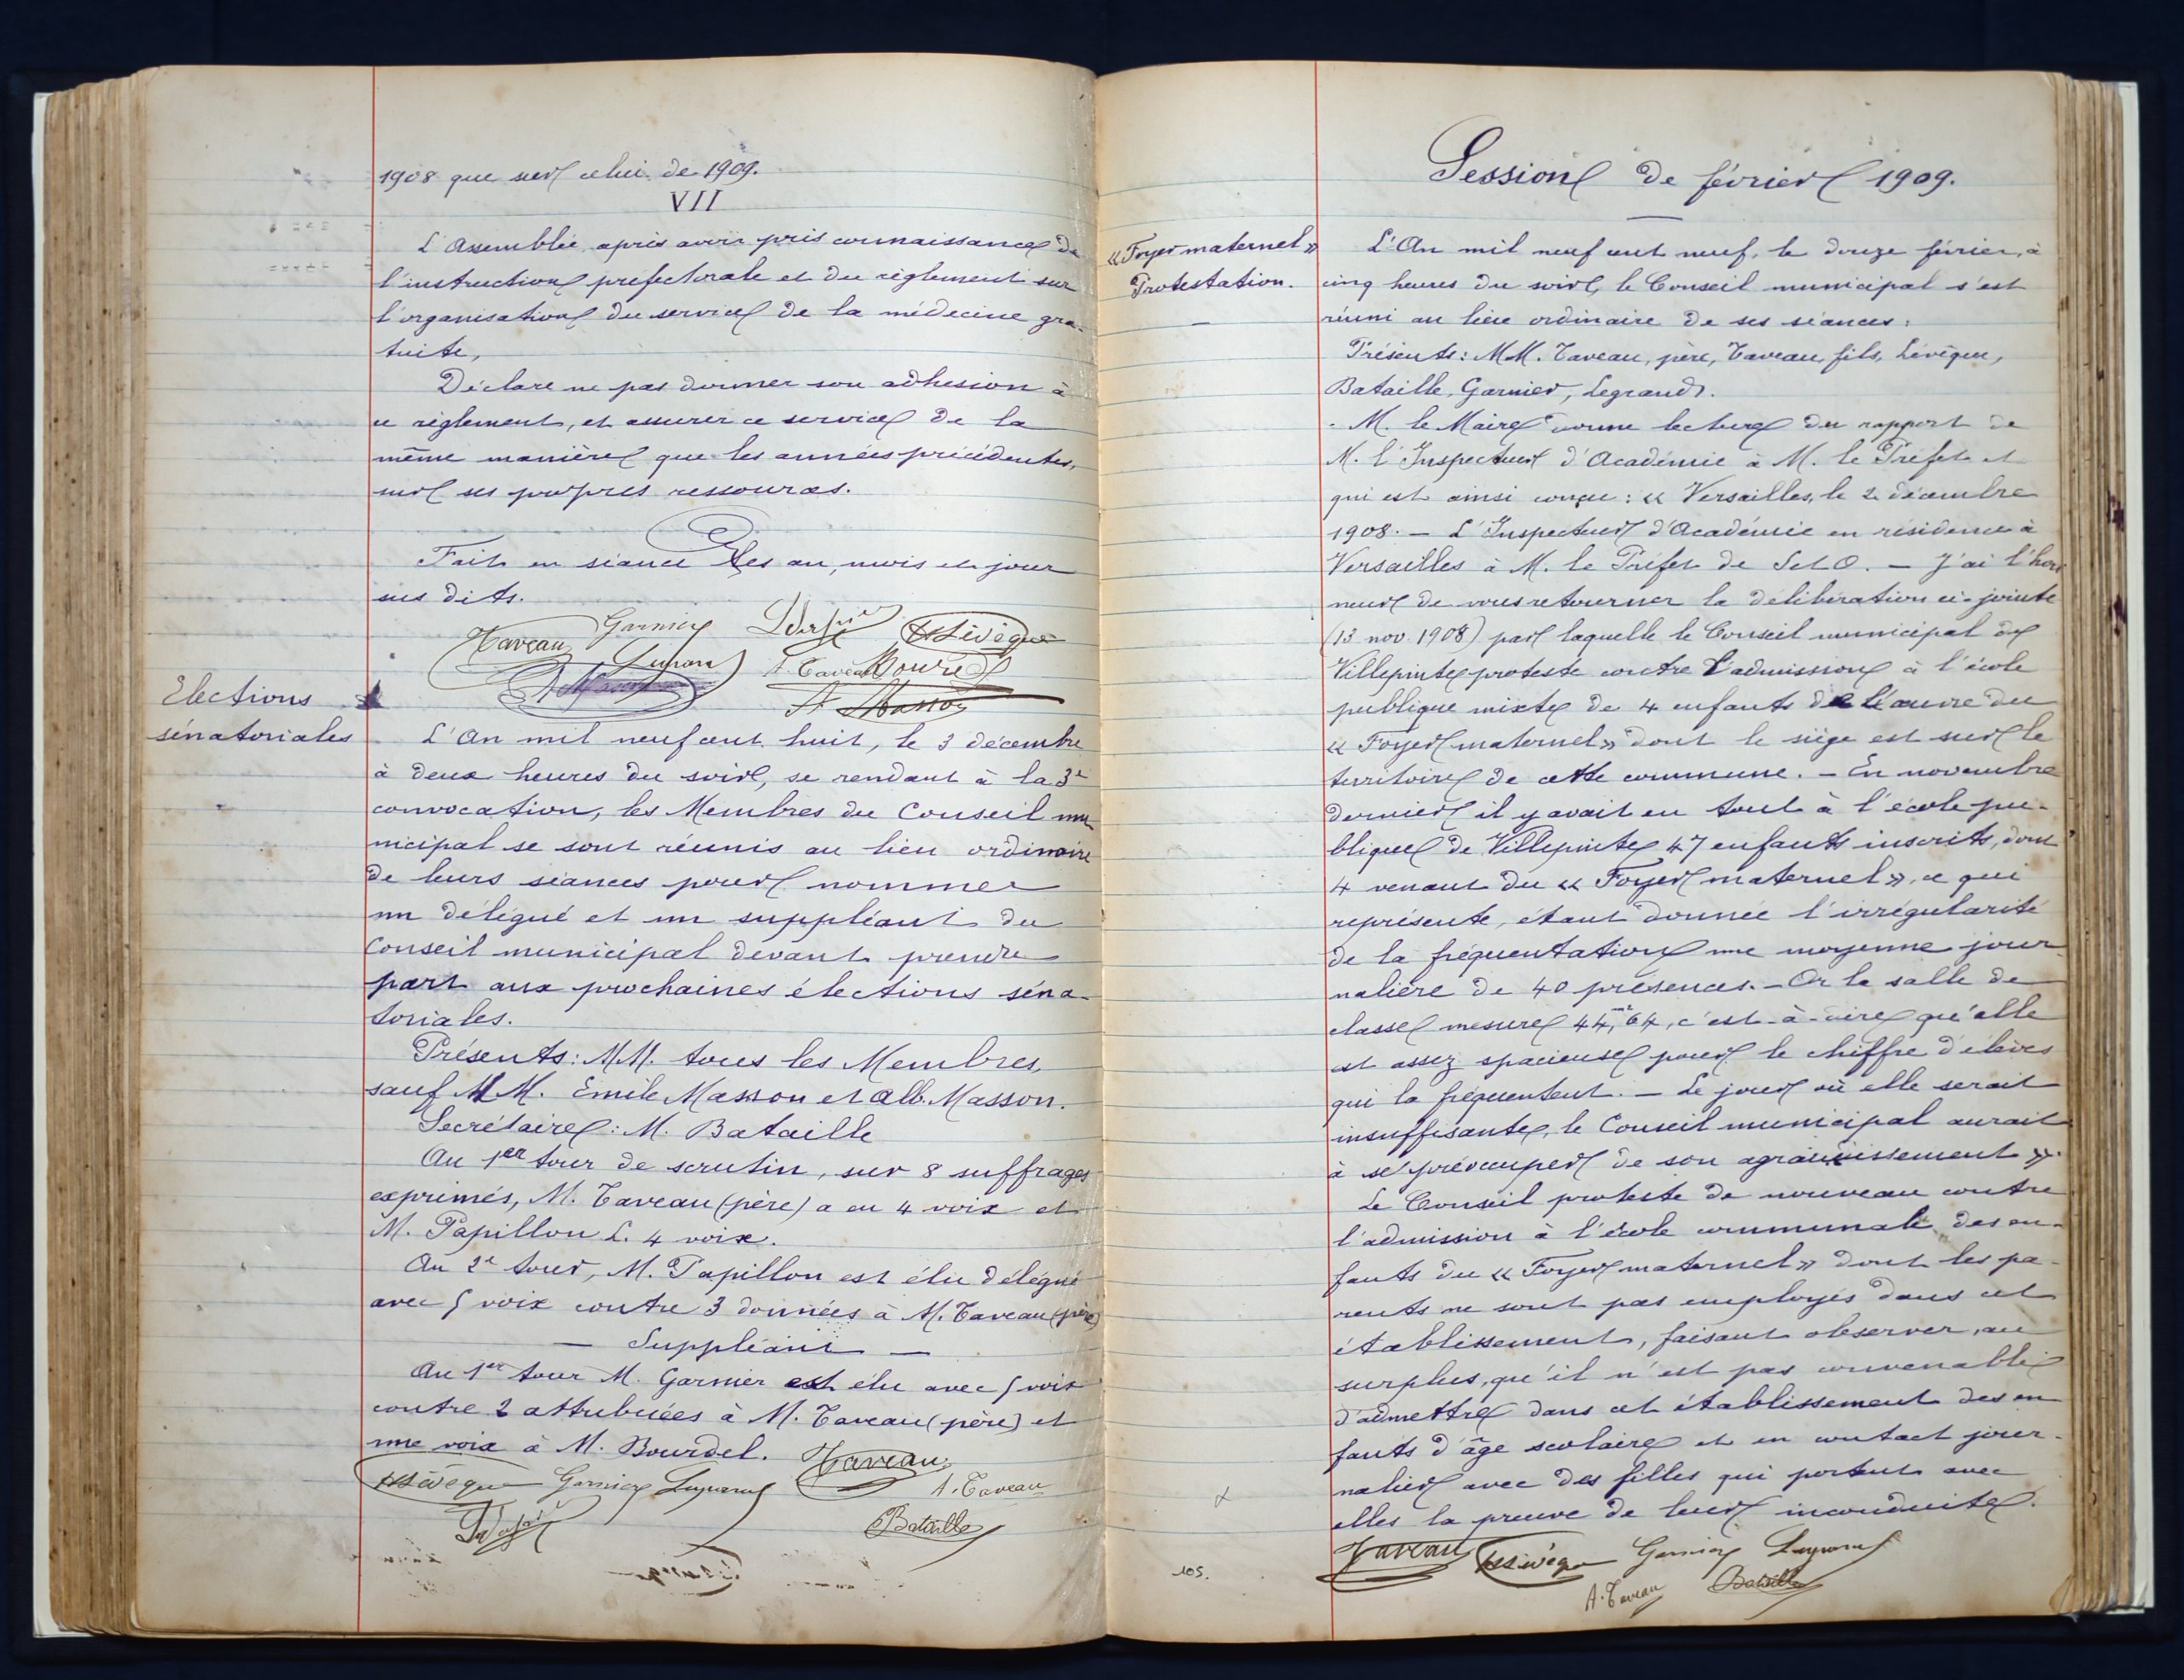 1908 que sur celui de 1909.
VII
L'Assemblée, après avoir pris connaissance de
l'instruction préfectorale et du règlement sur
l'organisation du service de la médecine gra-
tuite,
Déclare ne pas donner son adhésion à
ce règlement, et assurer ce service de la
même manière que les années précédentes,
sur ses propres ressources.
Fait en séance les an, mois et jour
sus dits.
Taveau Garnier HLévêque
A. Taveau Bourdel
A. Masson
Elections
sénatoriales
L'An mil neuf cent huit, le 3 décembre
à deux heures du soir, se rendant à la 3e
convocation, les Membres du Conseil mu
nicipal se sont réunis au lieu ordinaire
de leurs séances pour nommer
un délégué et un suppléant du
Conseil municipal devant prendre
part aux prochaines élections séna-
toriales.
Présents: MM. tous les Membres,
sauf MM. Emile Masson et Alb. Masson.
Secrétaire: M. Bataille
Au 1er tour de scrutin, sur 8 suffrages
exprimés, M. Taveau (père) a eu 4 voix et
M. Papillon L. 4 voix.
Au 2e tour, M. Papillon est élu délégué
avec 5 voix contre 3 données à M. Taveau (père)
— Suppléant —
Au 1er tour M. Garnier est élu avec 5 voix
contre 2 attribuées à M. Taveau (père) et
une voix à M. Bourdel. Taveau
HLévêque Garnier Legrand A. Taveau
Bataille
Session de février 1909.
« Foyer maternel »
Protestation.
L'An mil neuf cent neuf, le douze février, à
cinq heures du soir, le Conseil municipal s'est
réuni au lieu ordinaire de ses séances:
Présents: MM. Taveau, père, Taveau, fils, Lévêque,
Bataille, Garnier, Legrand.
M. le Maire donne lecture du rapport de
M. l'Inspecteur d'Académie à M. le Préfet et
qui est ainsi conçu: « Versailles, le 2 décembre
1908. — L'Inspecteur d'Académie en résidence à
Versailles à M. le Préfet de S et O. — J'ai l'hon
neur de vous retourner la délibération ci-jointe
(13 nov. 1908) par laquelle le Conseil municipal de
Villepinte proteste contre l'admission à l'école
publique mixte de 4 enfants de l'œuvre du
« Foyer maternel » dont le siège est sur le
territoire de cette commune. — En novembre
dernier il y avait en tout à l'école pu-
blique de Villepinte 47 enfants inscrits, dont
4 venant du « Foyer maternel », ce qui
représente, étant donnée l'irrégularité
de la fréquentation une moyenne jour-
nalière de 40 présences. — Or la salle de
classe mesure 44,m²64, c'est-à-dire qu'elle
est assez spacieuse pour le chiffre d'élèves
qui la fréquentent. — Le jour où elle serait
insuffisante, le Conseil municipal aurait
à se préoccuper de son agrandissement ».
Le Conseil proteste de nouveau contre
l'admission à l'école communale des en-
fants du « Foyer maternel » dont les pa-
rents ne sont pas employés dans cet
établissement, faisant observer, au
surplus, qu'il n'est pas convenable
d'admettre dans cet établissement des en
fants d'âge scolaire et en contact jour-
nalier avec des filles qui portent avec
elles la preuve de leur inconduite.
Taveau HLévêque Garnier Legrand
A. Taveau Bataille
105.